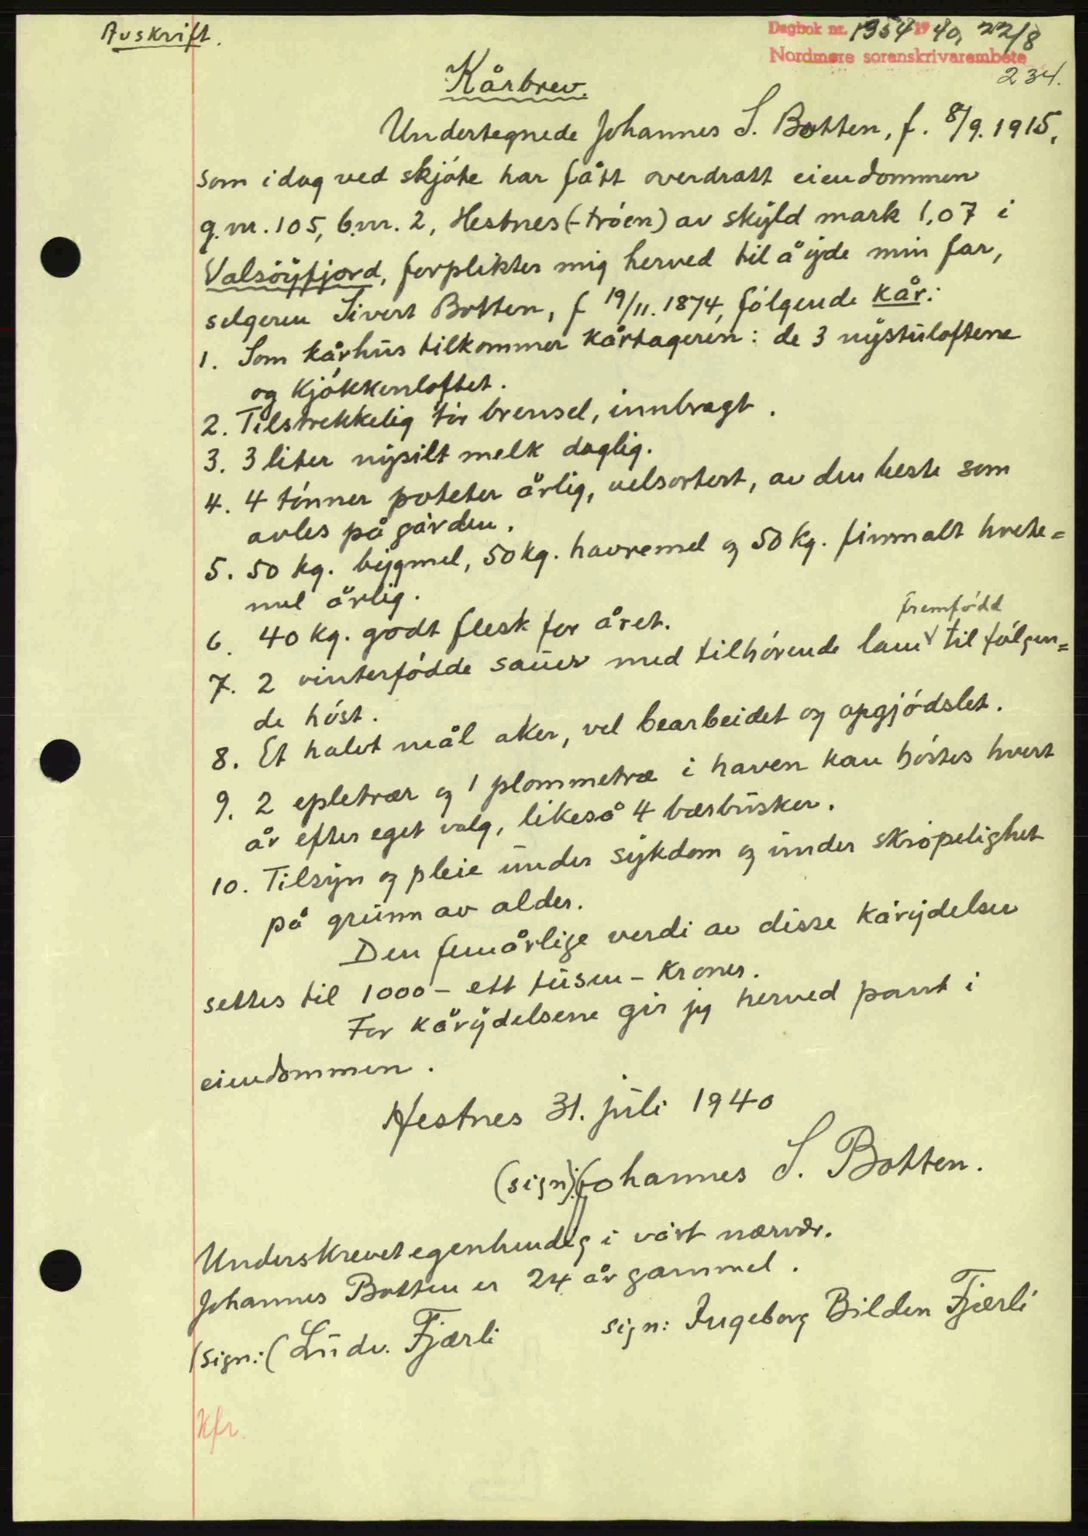 Avskrift.
Dagbok nr. 1954 1940, 22/8
Nordmøre sorenskrivarembete
234.
Kårbrev.
Undertegnede Johannes S. Botten, f. 8/9. 1915,
som idag ved skjøte har fått overdratt eiendommen
g.nr. 105, b.nr. 2, Hestnes (-trøen) av skyld mark 1,07 i
Valsøyfjord, forplikter mig herved til å yde min far,
selgeren Sivert Botten, f 19/11. 1874, følgende kår:
1. Som kårhus tilkommer kårtageren: de 3 nystuloftene
og kjøkkenloftet.
2. Tilstrekkelig tør brensel, innbragt.
3. 3 liter nysilt melk daglig.
4. 4 tønner poteter årlig, velsortert, av den beste som
avles på gården.
5. 50 kg. bygmel, 50 kg. havremel og 50 kg. finmalt hvete=
mel årlig.
6. 40 kg. godt flesk for året.
fremfødd
7. 2 vinterfødde sauer med tilhørende lam til følgen=
de høst.
8. Et halvt mål aker, vel bearbeidet og opgjødslet.
9. 2 epletrær og 1 plommetræ i haven kan høstes hvert
år efter eget valg, likeså 4 bærbusker.
10. Tilsyn og pleie under sykdom og under skrøpelighet
på grunn av alder.
Den femårlige verdi av disse kårydelser
settes til 1000 - ett tusen - kroner.
For kårydelsene gir jeg herved pant i
eiendommen.
Hestnes 31. juli 1940
(sign): Johannes S. Botten.
Underskrevet egenhendig i vårt nærvær.
Johannes Botten er 24 år gammel.
(sign:( Ludv. Fjærli
sign: Ingeborg Bilden Fjærli
Kfr.